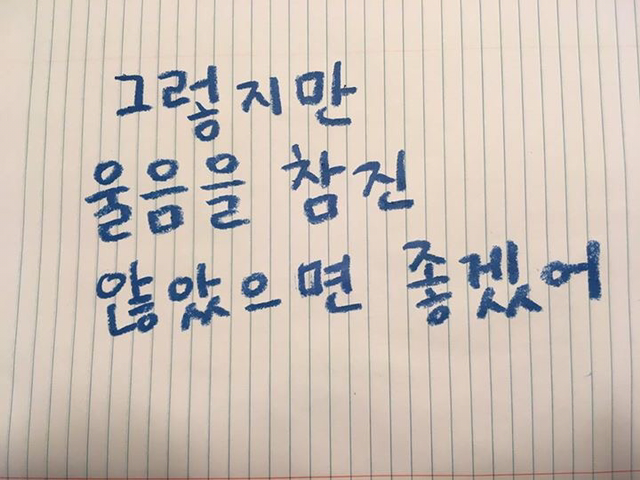 그렇지만
울음을 참진
않았으면 좋겠어